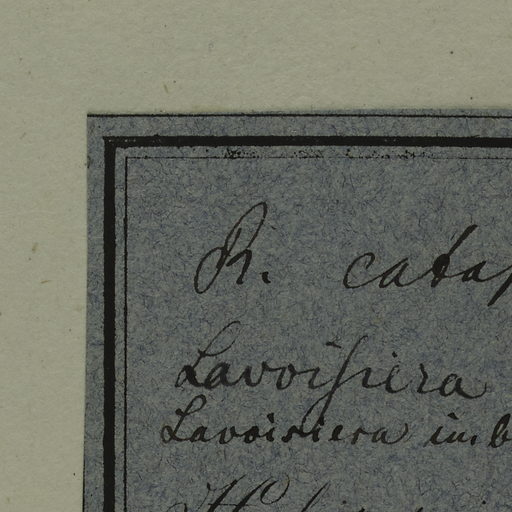 R. cata
Lavoisiera
Lavoisiera imb